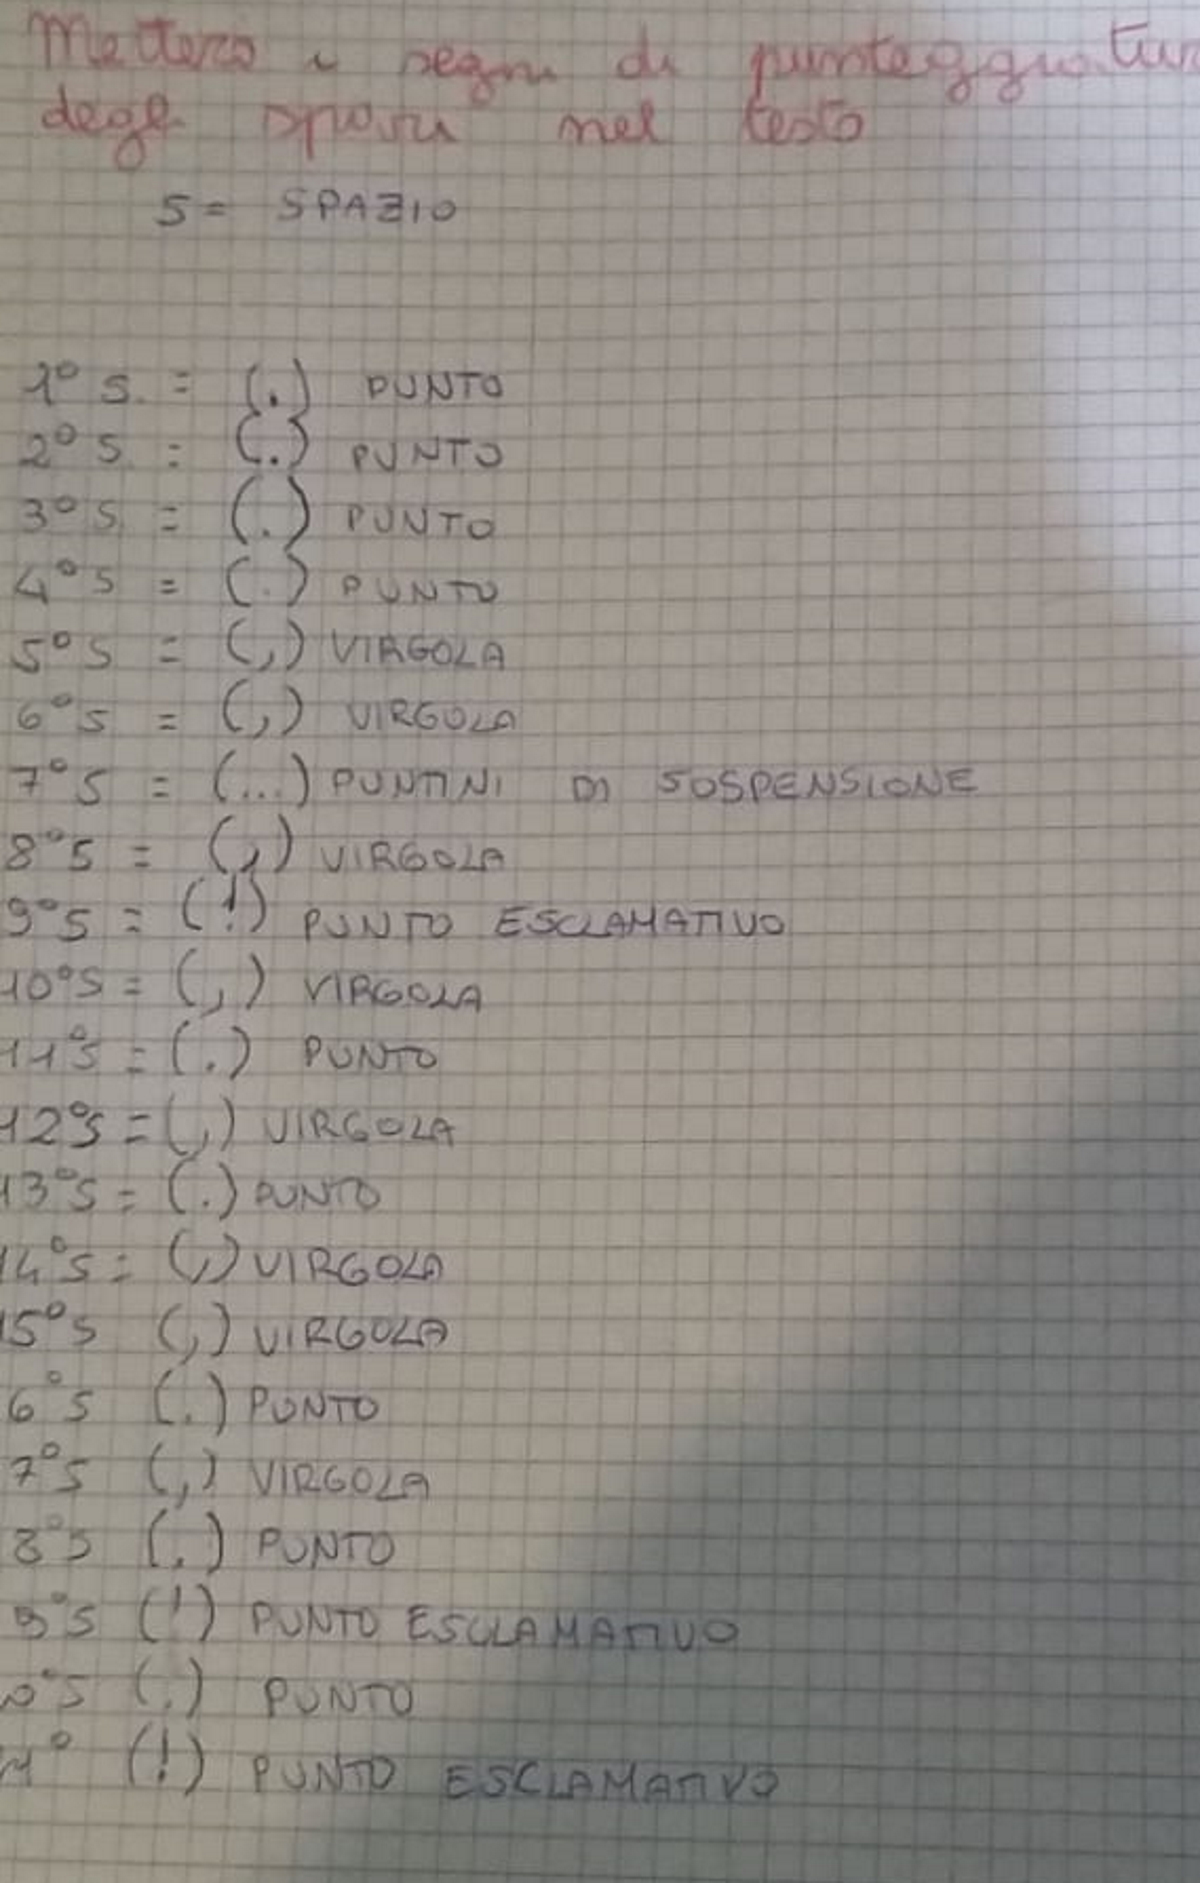 Mettere i segni di punteggiatur
degli spazi nel testo
S = SPAZIO
1° S. = (.) PUNTO
2° S = (.) PUNTO
3° S = (.) PUNTO
4° S = (.) PUNTO
5° S = (,) VIRGOLA
6° S = (,) VIRGOLA
7° S = (...) PUNTINI DI SOSPENSIONE
8° S = (,) VIRGOLA
9° S = (!) PUNTO ESCLAMATIVO
10° S = (,) VIRGOLA
11° S = (.) PUNTO
12° S = (,) VIRGOLA
13° S = (.) PUNTO
14° S = (,) VIRGOLA
15° S (,) VIRGOLA
6° S (.) PUNTO
7° S (,) VIRGOLA
8° S (.) PUNTO
9° S (!) PUNTO ESCLAMATIVO
0° S (.) PUNTO
1° (!) PUNTO ESCLAMATIVO